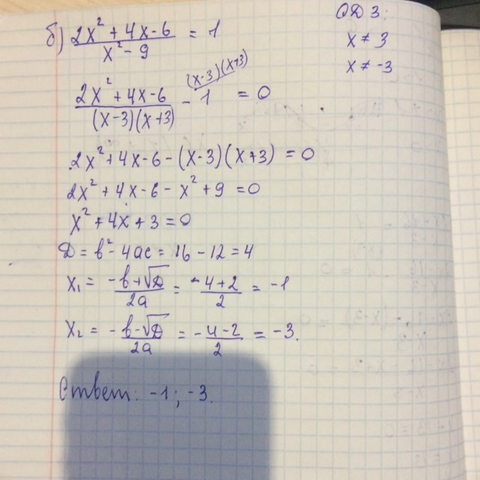 б) (2x² + 4x - 6) / (x² - 9) = 1
ОДЗ:
x ≠ 3
x ≠ -3
(2x² + 4x - 6) / ((x-3)(x+3)) - 1 (x-3)(x+3) = 0
2x² + 4x - 6 - (x-3)(x+3) = 0
2x² + 4x - 6 - x² + 9 = 0
x² + 4x + 3 = 0
D = b² - 4ac = 16 - 12 = 4
x₁ = (-b + √D) / 2a = (-4 + 2) / 2 = -1
x₂ = (-b - √D) / 2a = (-4 - 2) / 2 = -3.
Ответ: -1; -3.